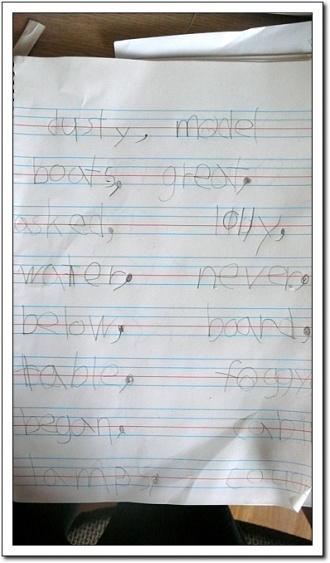 dusty, model
boats, great,
asked, lolly,
water, never,
below, board,
table, foggy
began,
lamp,